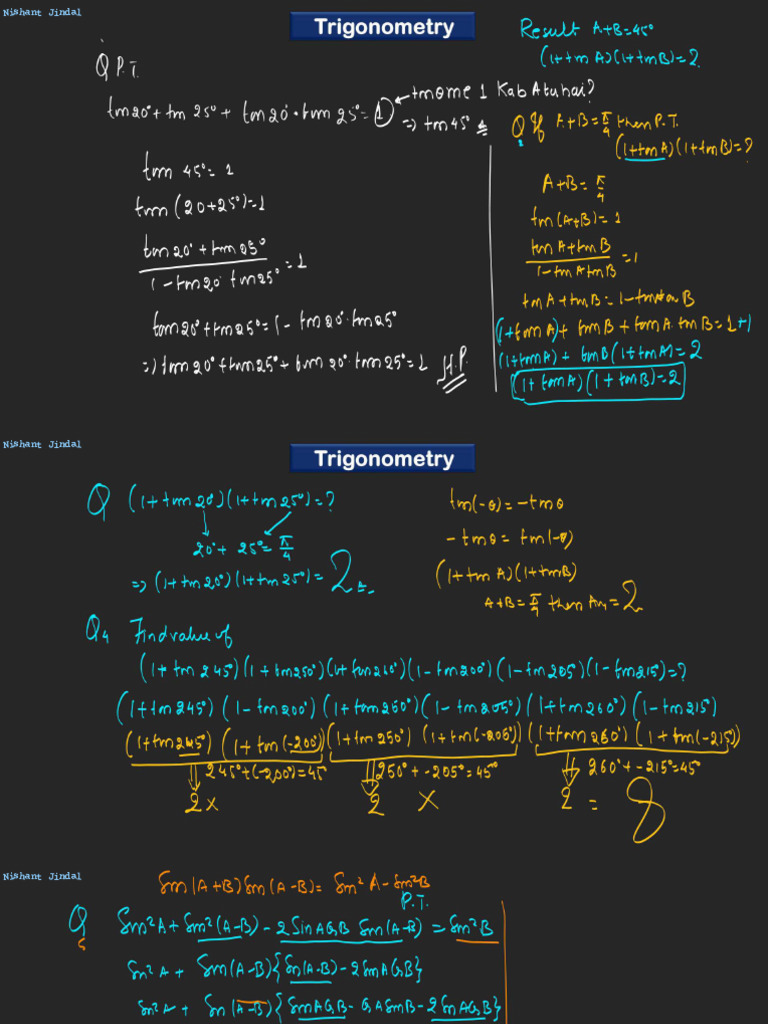 Nishant Jindal
Trigonometry
Result A+B=45°
(1+tanA)(1+tanB)=2
Q P.T.
tan20°+tan 25°+ tan20°•tan25°=1
tanθ me 1 Kab Ata hai?
=> tan45°
tan 45°=1
tan (20+25°)=1
tan20°+tan25°
1-tan20° tan25° =1
tan20°+tan25°=1- tan20°·tan25°
=> tan20°+tan25°+tan20°·tan25°=1 H.P.
Q If A+B=π/4 then P.T.
(1+tanA)(1+tanB)=?
A+B=π/4
tan(A+B)=1
tanA+tanB
1-tanAtanB =1
tanA+tanB=1-tanAtanB
(1+tanA)+ tanB+tanA.tanB=1+1
(1+tanA)+ tanB(1+tanA)=2
(1+tanA)(1+tanB)=2
Nishant Jindal
Trigonometry
Q (1+tan20°)(1+tan25°)=?
20°+ 25°=π/4
=> (1+tan20°)(1+tan25°)= 2
tan(-θ)=-tanθ
-tanθ= tan(-θ)
(1+tanA)(1+tanB)
A+B=π/4 then Ans=2
Q4 Find value of
(1+tan245°)(1+tan250°)(1+tan260°)(1-tan200°)(1-tan205°)(1-tan215°)=?
(1+tan245°)(1-tan200°)(1+tan250°)(1-tan205°)(1+tan260°)(1-tan215°)
(1+tan245°)(1+tan(-200°))(1+tan250°)(1+tan(-205°))(1+tan260°)(1+tan(-215°))
245°+(-200°)=45° 250°+-205°=45° 260°+-215°=45°
2 x 2 x 2 = 8
Nishant Jindal
Sin(A+B)Sin(A-B)= Sin²A-Sin²B
P.T.
Q5 Sin²A+Sin²(A-B)-2SinACosB Sin(A-B)=Sin²B
Sin²A + Sin(A-B){Sin(A-B)-2SinACosB}
Sin²A + Sin(A-B){SinACosB-CosASinB-2SinACosB}